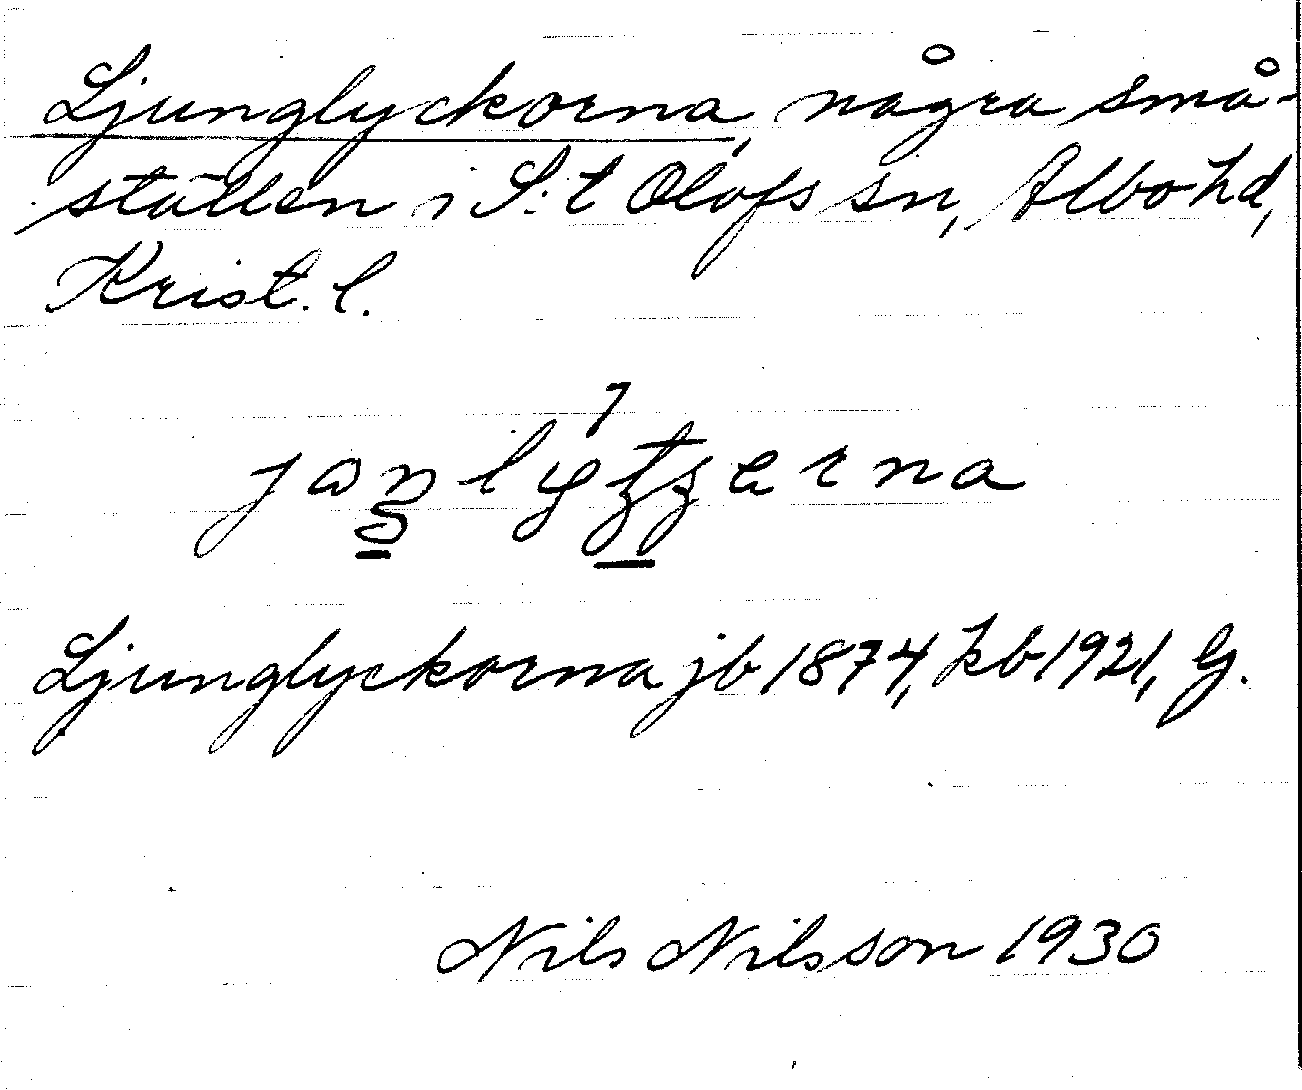 Ljunglyckorna, några små-
ställen i S:t Olofs sn, Albo hd,
Krist. l.
Ljunglyckorna jb 1874, kb 1921, G.
Nils Nilsson 1930